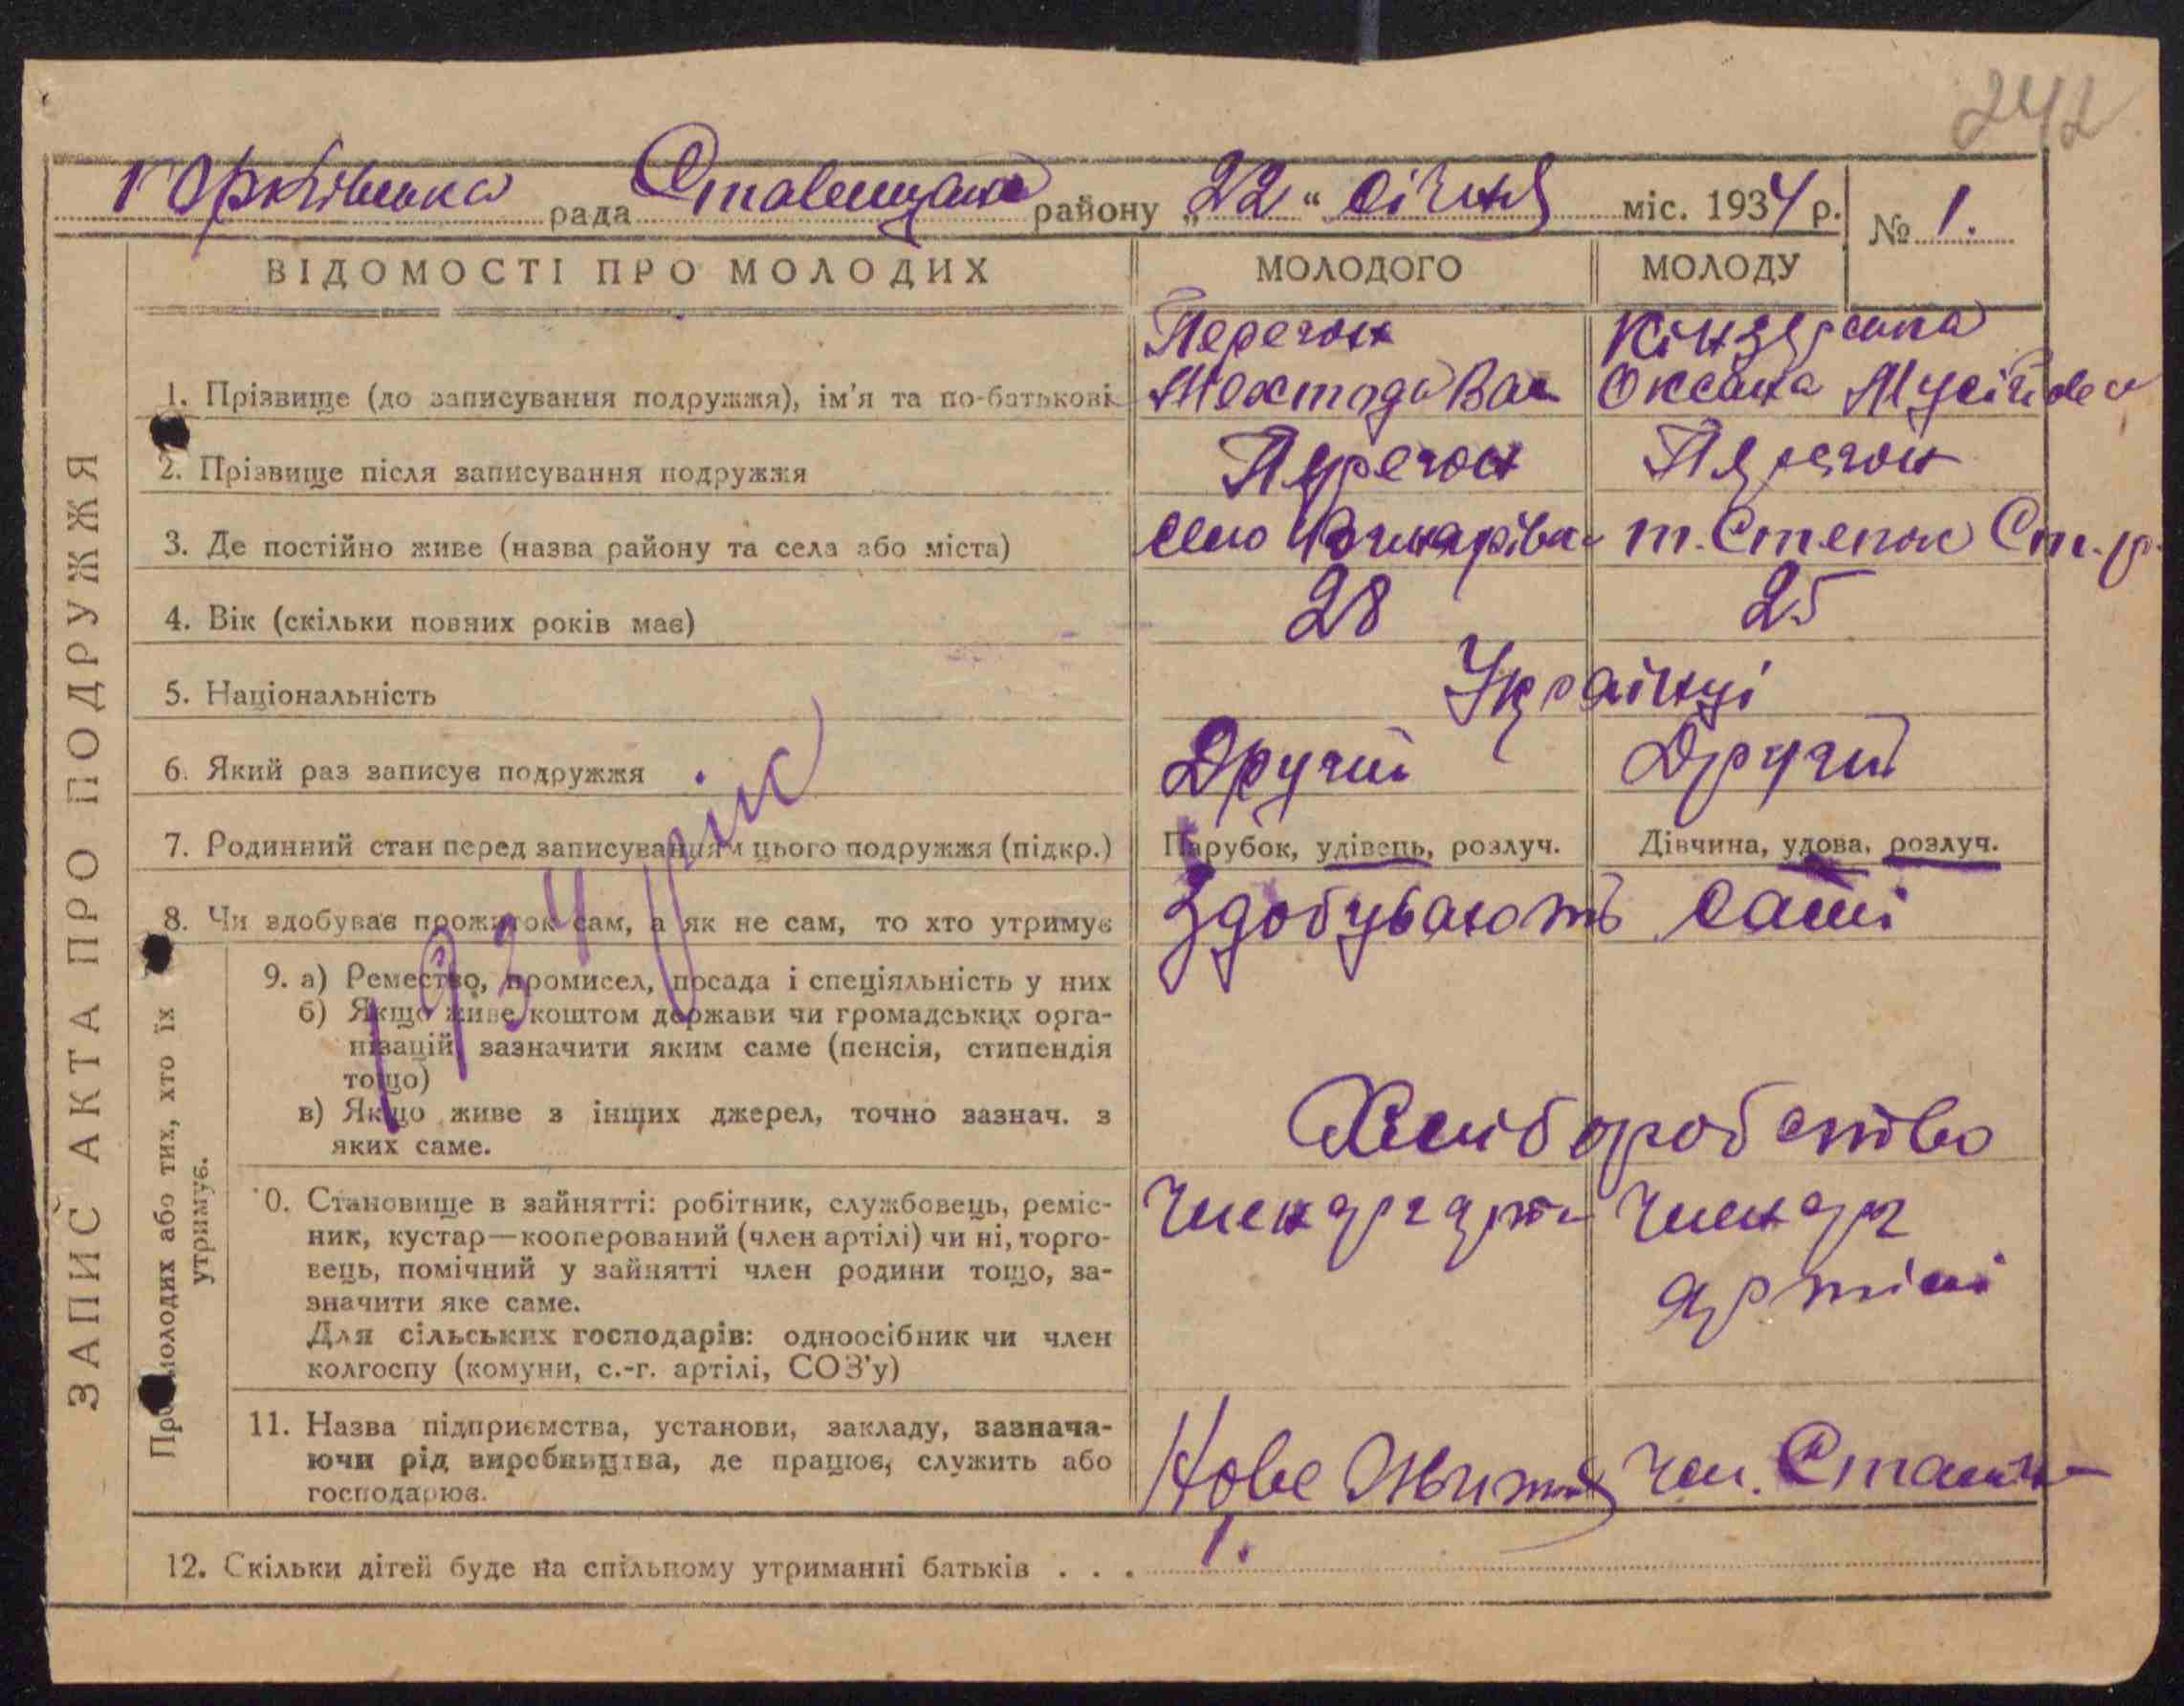 242
рада Ставищан району „22“ Січня міс. 1934 р. № 1.
ВІДОМОСТІ ПРО МОЛОДИХ МОЛОДОГО МОЛОДУ
ЗАПИС АКТА ПРО ПОДРУЖЖЯ
Перегон
1. Прізвище (до записування подружжя), ім'я та по-батькові Оксана Мусіївна
2. Прізвище після записування подружжя Перегон Перегон
3. Де постійно живе (назва району та села або міста) село т. Степок Ст. р.
4. Вік (скільки повних років має) 28 25
5. Національність Українці
6. Який раз записує подружжя Другий Другий
7. Родинний стан перед записуванням цього подружжя (підкр.) Парубок, удівець, розлуч. Дівчина, удова, розлуч.
8. Чи здобуває прожиток сам, а як не сам, то хто утримує Здобувають самі
1934 рік
Про молодих або тих, хто їх
утримує.
9. а) Ремество, промисел, посада і спеціяльність у них
б) Якщо живе коштом держави чи громадських орга-
нізацій, зазначити яким саме (пенсія, стипендія
тощо)
в) Якщо живе з інших джерел, точно зазнач. з
яких саме.
Хліборобство
10. Становище в зайнятті: робітник, службовець, реміс-
ник, кустар—кооперований (член артілі) чи ні, торго-
вець, помічний у зайнятті член родини тощо, за-
значити яке саме.
Для сільських господарів: одноосібник чи член
колгоспу (комуни, с.-г. артілі, СОЗ'у)
артілі
11. Назва підприємства, установи, закладу, зазнача-
ючи рід виробництва, де працює, служить або
господарює.
Нове Життя чл.
12. Скільки дітей буде на спільному утриманні батьків . . . 1.